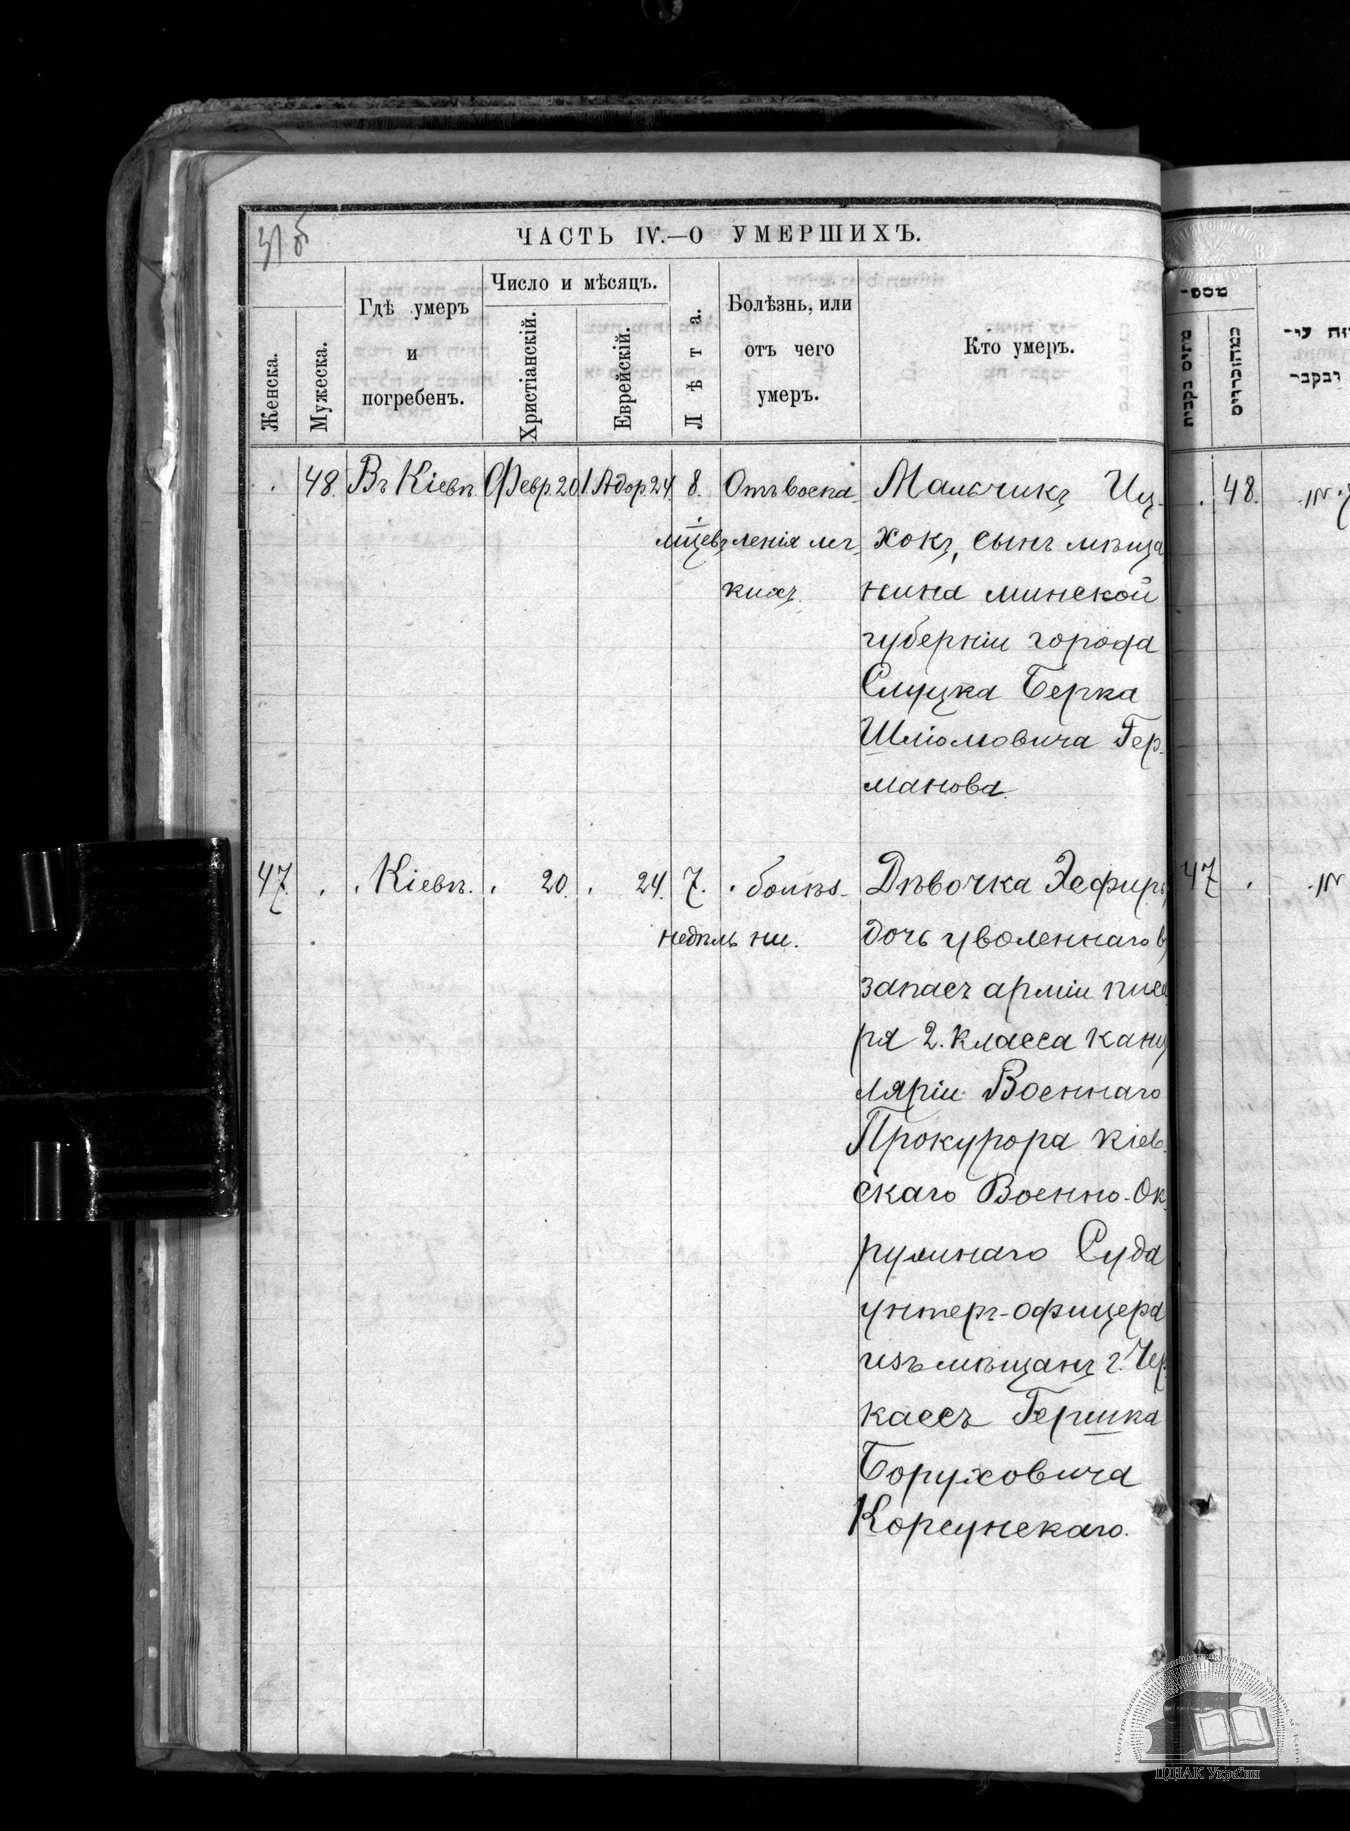 31 б
ЧАСТЬ IV.—О УМЕРШИХЪ.
Женска.
Мужеска.
Гдѣ умеръ
и
погребенъ.
Число и мѣсяцъ.
Христіанскій.
Еврейскій.
Лѣта.
Болѣзнь, или
отъ чего
умеръ.
Кто умеръ.
48. Въ Кіевѣ Февр. 20 1. Адор 24 8. Отъ воспа Мальчикъ Иц-
мцевъ ленія лег хокъ, сынъ мѣща
кихъ. нина минской
губерніи города
Слуцка Берка
Шліомовича Гер-
манова.
47. Кіевѣ. 20. 24. 7. болѣз- Дѣвочка Эсфирь,
недѣль ни. дочь уволеннаго в
запасъ арміи писа
ря 2. класса канц
ляріи Военнаго
Прокурора Кіев-
скаго Военно-Ок
ружнаго Суда
унтеръ-офицера
изъ мѣщанъ г. Чер
кассъ Гершка
Боруховича
Корсунскаго.
מספר
48.
47
ЦДІАК України